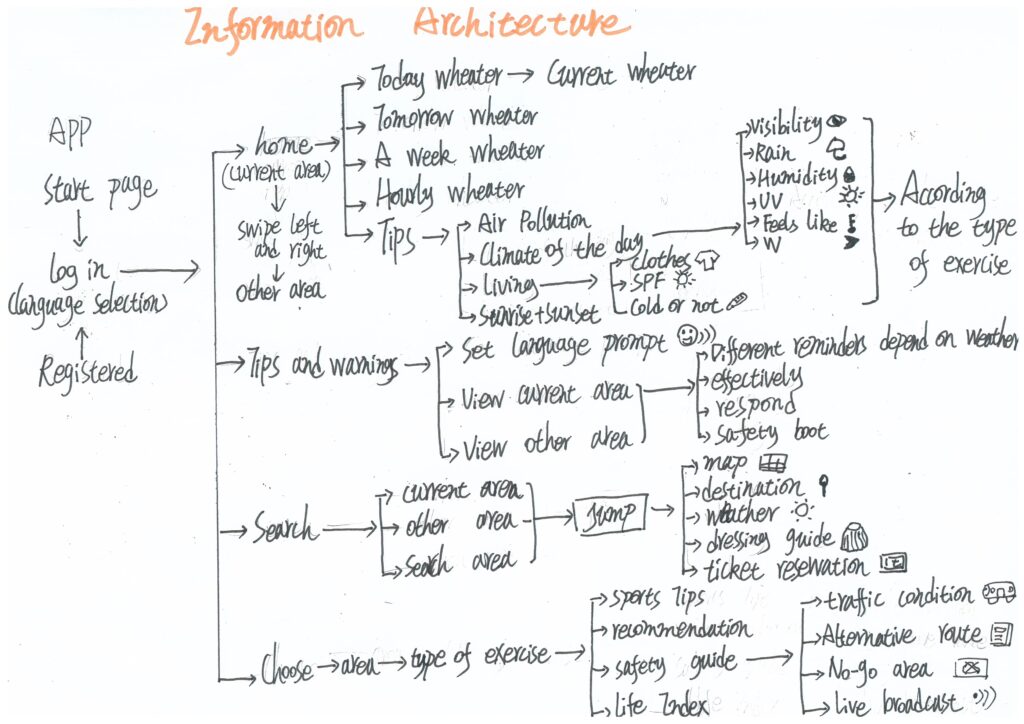 Information Architecture
APP
Start page
Log in
(language selection)
Registered
home
(current area)
swipe left
and right
other area
Today wheater
Current wheater
Tomorrow wheater
A week wheater
Hourly wheater
Tips
Air Pollution
Climate of the day
Living
Sunrise+sunset
clothes
SPF
Cold or not
Visibility
Rain
Humidity
UV
Feels like
W
According
to the type
of exercise
Tips and warnings
Set language prompt
View current area
View other area
Different reminders depend on weather
effectively
respond
safety boot
Search
current area
other area
search area
Jump
map
destination
weather
dressing guide
ticket reservation
Choose
area
type of exercise
sports Tips
recommendation
safety guide
Life Index
traffic condition
Alternative route
No-go area
Live broadcast